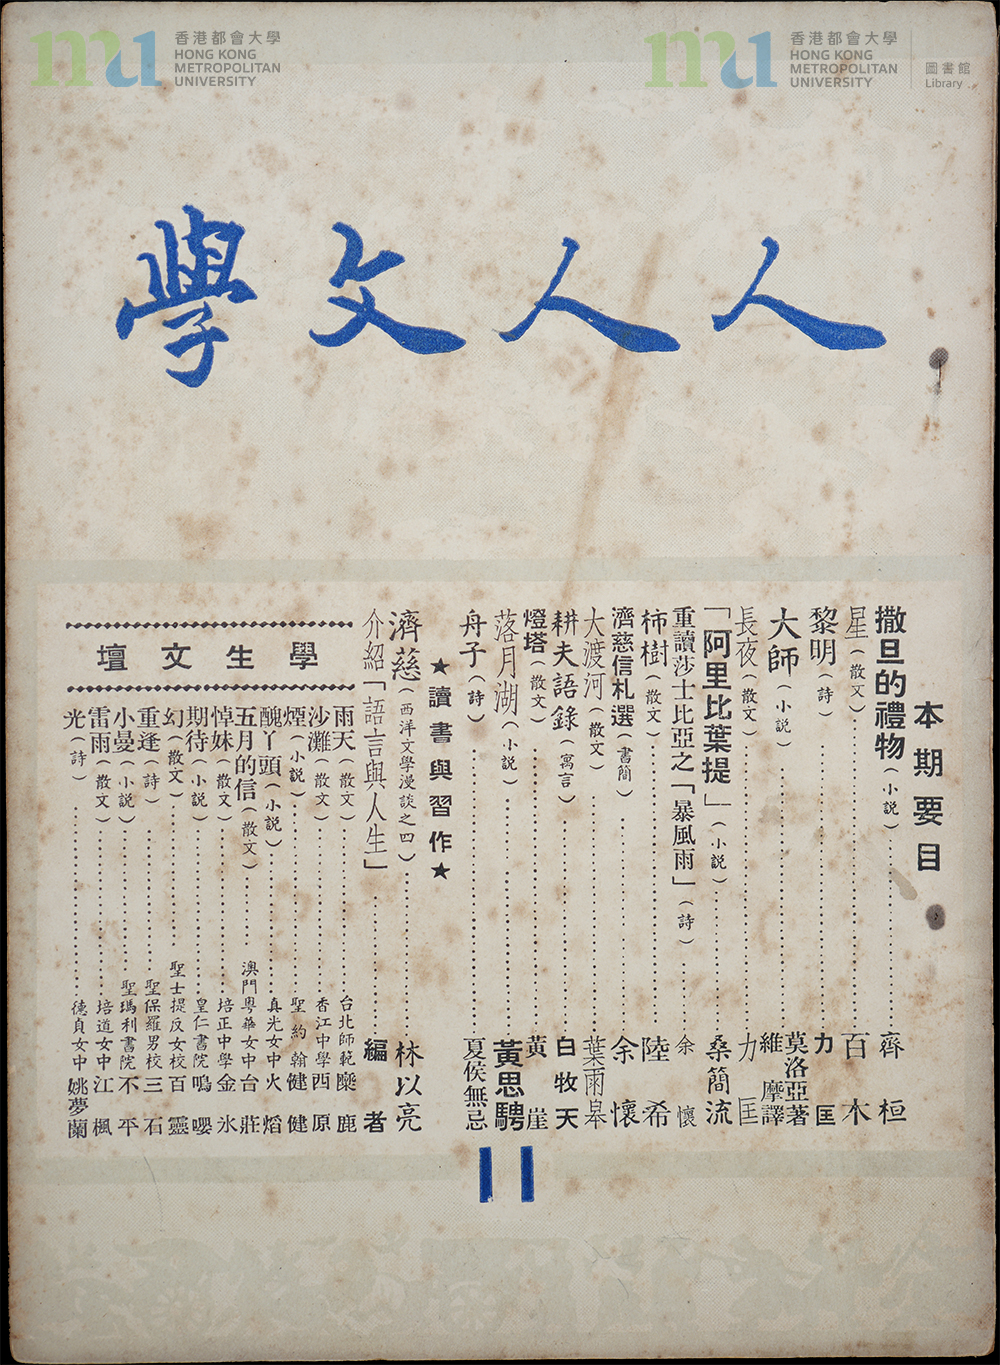 香港都會大學
HONG KONG
METROPOLITAN
UNIVERSITY
香港都會大學
HONG KONG
METROPOLITAN
UNIVERSITY
圖書館
Library
人人文學
本期要目
撒旦的禮物(小説)齊桓
星(散文)百木
黎明(詩)力匡
大師(小説)莫洛亞著
維摩譯
長夜(散文)力匡
「阿里比葉提」(小説)桑簡流
重讀莎士比亞之「暴風雨」(詩)余懷
柿樹(散文)陸希
濟慈信札選(書簡)余懷
大渡河(散文)葉雨皋
耕夫語錄(寓言)白牧天
燈塔(散文)黃崖
落月湖(小説)黃思騁
舟子(詩)夏侯無忌
★讀書與習作★
濟慈(西洋文學漫談之四)林以亮
介紹「語言與人生」編者
學生文壇
雨天(散文)台北師範麋鹿
沙灘(散文)香江中學西原
煙(小説)聖約翰健健
醜丫頭(小説)真光女中火熖
五月的信(散文)澳門粵華女中台莊
悼妹(散文)培正中學金氷
期待(小説)皇仁書院鳴嚶
幻(散文)聖士提反女校百靈
重逢(詩)聖保羅男校三石
小曼(小説)聖瑪利書院不平
雷雨(散文)培道女中江楓
光(詩)德貞女中姚夢蘭
11